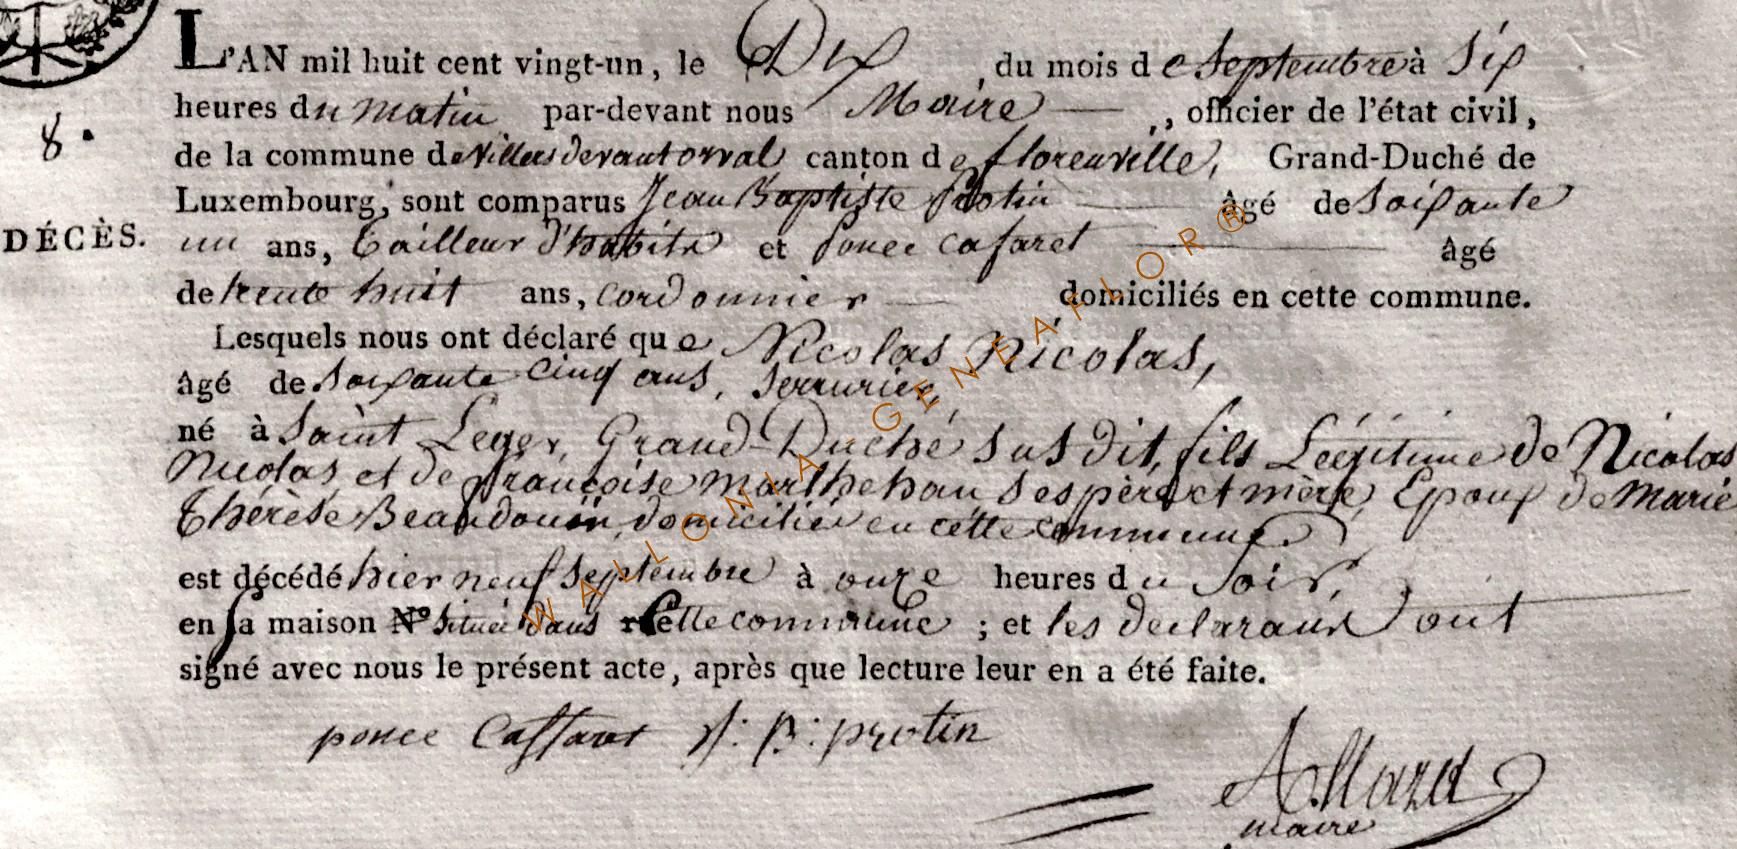 L'AN mil huit cent vingt-un, le Dix, du mois de Septembre à Six
heures du matin par-devant nous Maire, officier de l'état civil,
8.
de la commune de villers devant orval canton de florenville, Grand-Duché de
Luxembourg, sont comparus Jean Baptiste Protin âgé de Soixante
DÉCÈS.
un ans, tailleur d'habits et Ponce Cafaret âgé
de trente huit ans, cordonnier domiciliés en cette commune.
Lesquels nous ont déclaré que Nicolas Nicolas,
âgé de Soixante cinq ans, Serrurier,
né à Saint Leger, Grand-Duché susdit, fils Légitime de Nicolas
Nicolas et de françoise Marthehau ses père et mère, Epoux de Marie
Thérèse Beaudouin, domicilié en cette commune
est décédé hier neuf Septembre à onze heures du Soir,
en sa maison N° située dans cette commune ; et les declarans ont
signé avec nous le présent acte, après que lecture leur en a été faite.
ponce Caffaret J: B: protin
maire
WALLONIA GENEAFLOR®